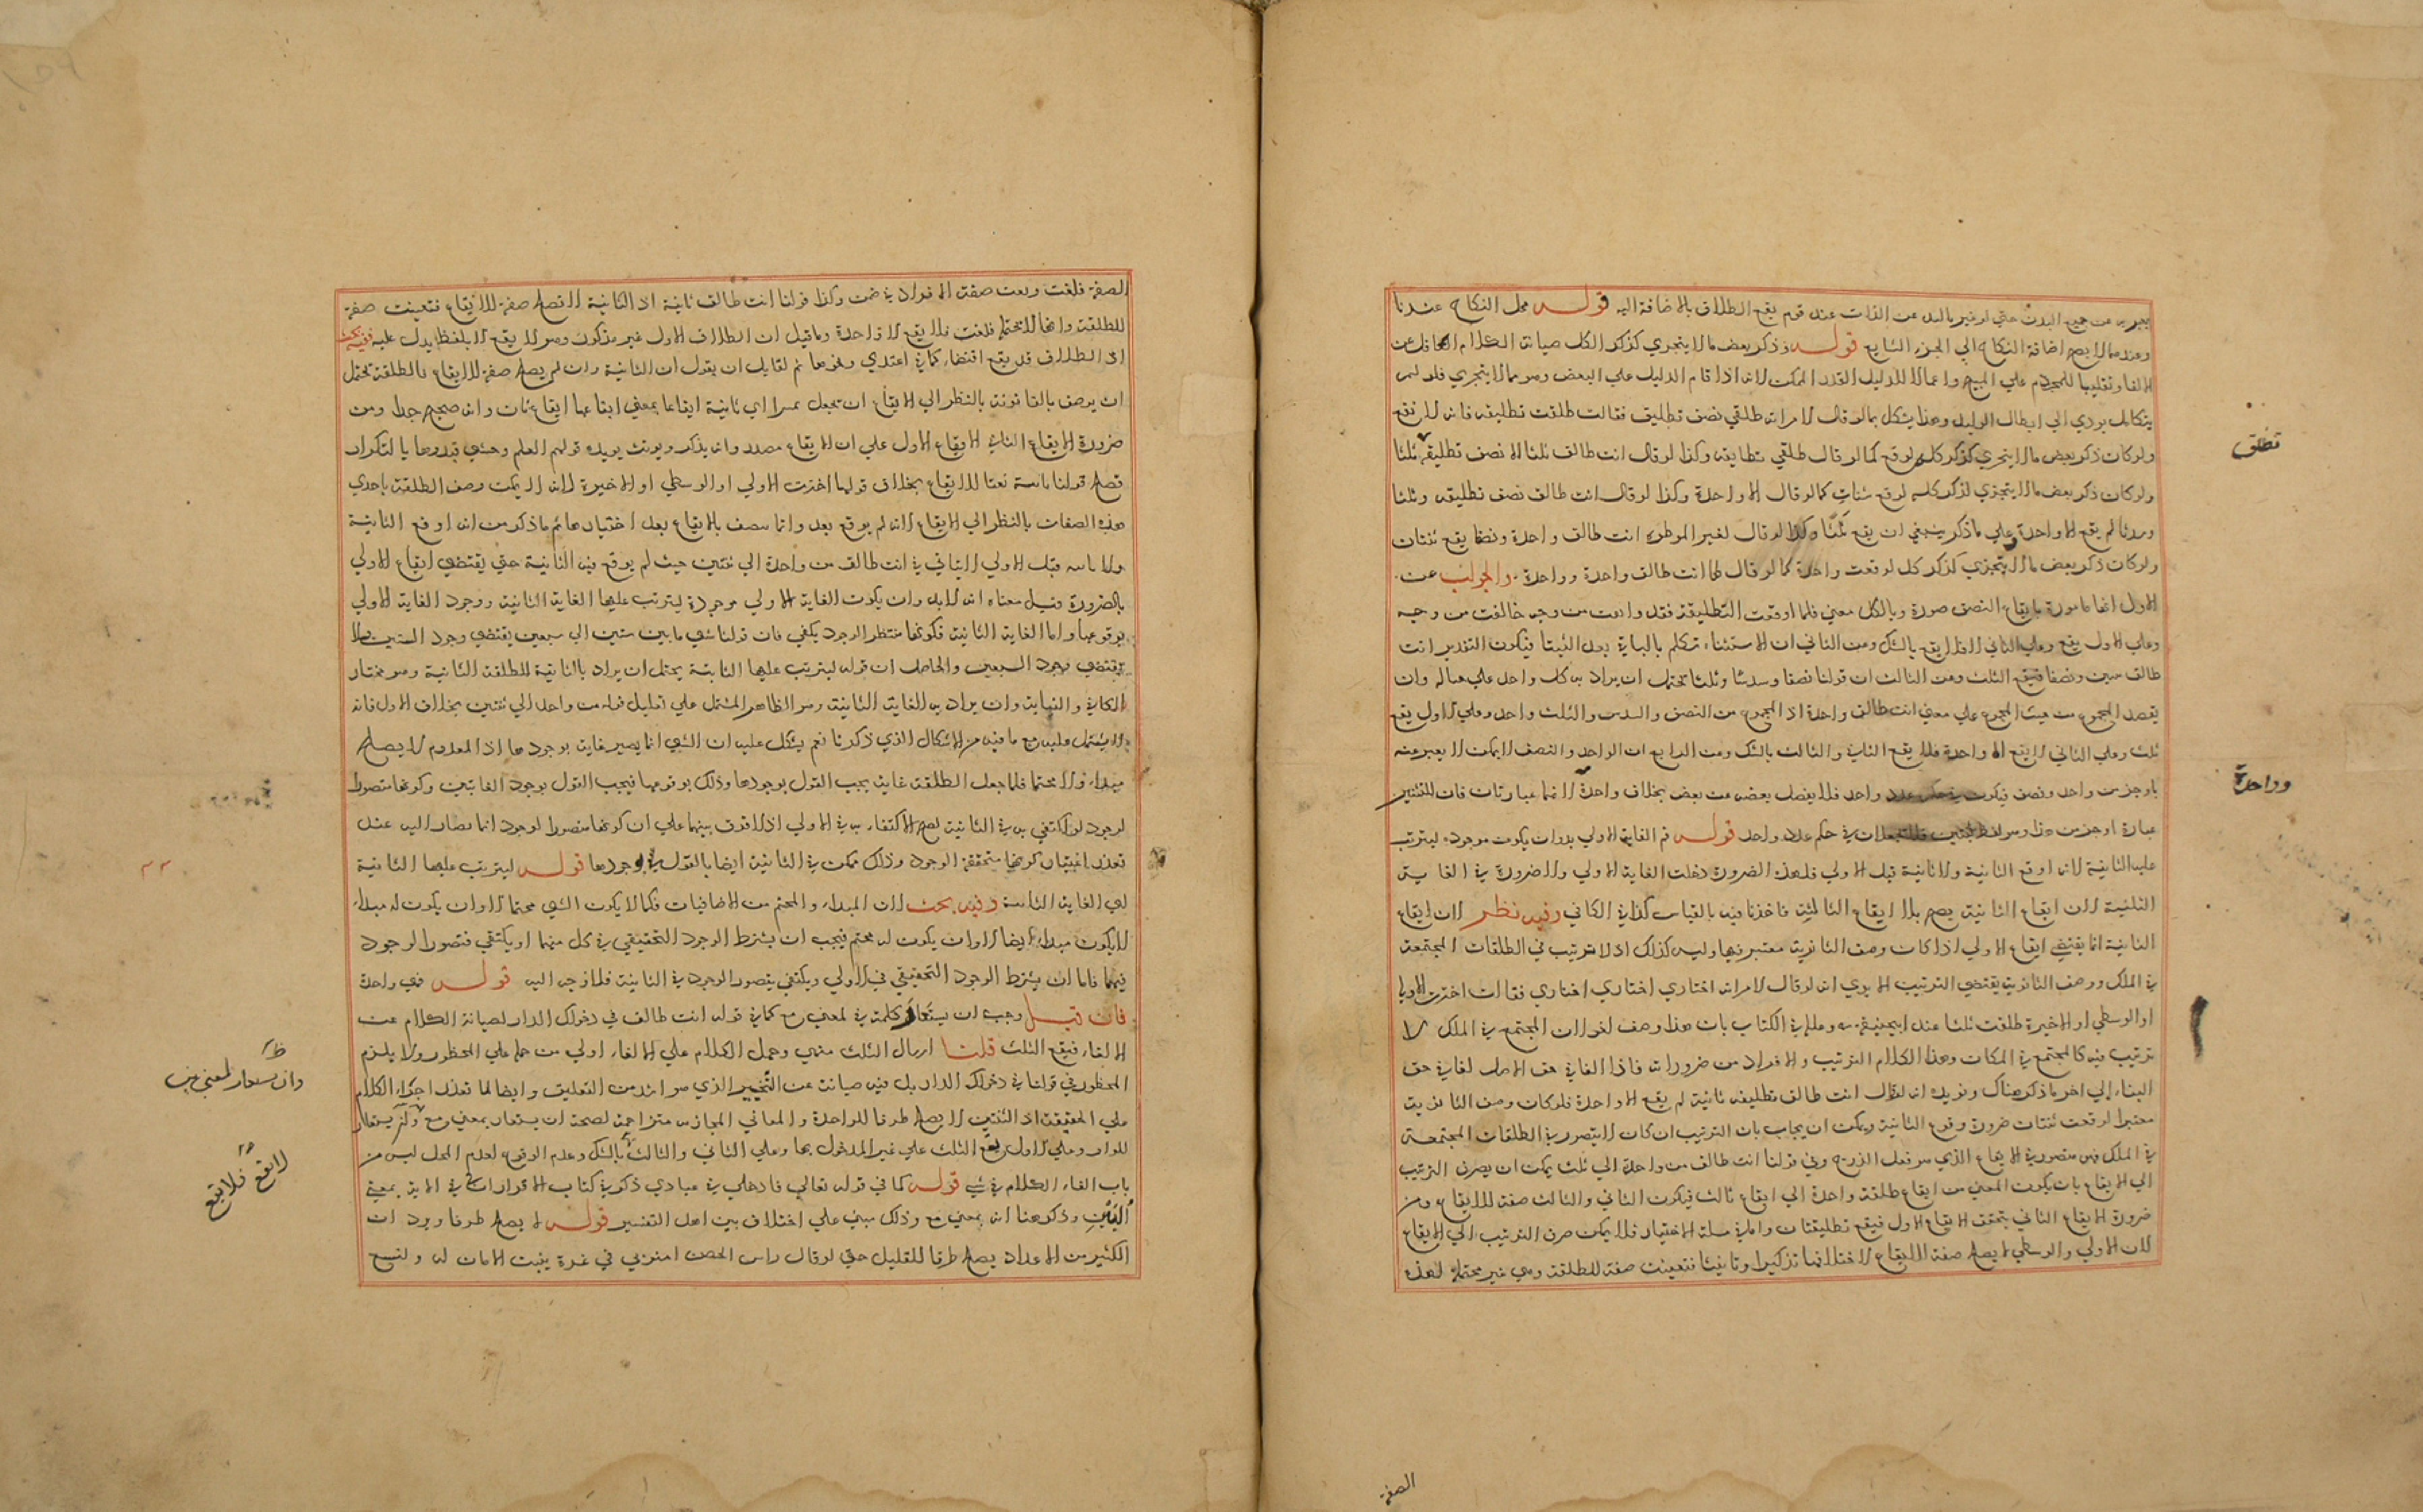 يعبر به عن جميع البدن حتى لو غير باليد عن الذات عند قوم يقع الطلاق بالاضافة اليه قوله محل النكاح عندنا
وعندهما لا يصح اضافة النكاح الي الجزء الشايع قوله وذكر بعض مالا يتجزي كذكر الكل صيانة الكلام العاقل عن
الالغا وتغليبا للمحرم علي المبيح واعمالا للدليل القدر الممكن لانه اذا قام الدليل علي البعض وهو مما لا يتجزي فلو لم
يتكامل يودي الي ابطال الدليل وهذا يشكل بما لو قال لامراته طلقي نصف تطليقة فقالت طلقت تطليقة فانه لا يقع
ولو كان ذكر بعض مالا يتجزي كذكر كله لوقع كما لو قال طلقي تطليقة وكذا لو قال انت طالق ثلثا الا نصف تطليقة تطلق ثلثا
ولو كان ذكر بعض مالا يتجزي كذكر كله لوقع ثنتان كما لو قال الا واحدة وكذا لو قال انت طالق نصف تطليقة وثلثا
وسدسا لم يقع الا واحدة وعلي ما ذكر ينبغي ان يقع ثلثا وكذا لو قال لغير الموطوة انت طالق واحدة ونصفا يقع ثنتان
ولو كان ذكر بعض مالا يتجزي كذكر كل لوقعت واحدة كما لو قال لها انت طالق واحدة وواحدة والجواب عن
الاول انها مامورة بايقاع النصف صورة وبالكل معني فلما اوقعت التطليقة فقد وافقت من وجه خالفت من وجه
وعلي الاول يقع وعلي الثاني لا فلا يقع بالشك وعن الثاني ان الاستثناء تكلم بالباقي بعد الثنيا فيكون التقدير انت
طالق ثنتين ونصفا فيقع الثلث وعن الثالث ان قولنا نصفا وسدسا وثلثا يحتمل ان يراد به كل واحد علي حياله وان
يقصد المجموع من حيث المجموع علي معني انت طالق واحدة اذ المجموع من النصف والسدس والثلث واحد وعلي الاول يقع
ثلث وعلي الثاني لا يقع الا واحدة فلا يقع الثاني والثالث بالشك وعن الرابع ان الواحد والنصف لا يمكن التعبير عنه
باوجز من واحد ونصف فيكون في حكم عدد واحد فلا يفصل بعضه عن بعض بخلاف واحدة وواحدة لانهما عبارتان فان للثنتين
عبارة اوجز من هذا وهو لفظ ثنتين فلا يجعلان في حكم عدد واحد قوله ثم الغاية الاولي لا بد وان يكون موجودة ليترتب
عليه الثانية لانه اوقع الثانية ولا ثانية قبل الاولي فلهذه الضرورة دخلت الغاية الاولي ولا ضرورة في الغاية
الثانية لان ايقاع الثانية يصح بلا ايقاع الثالثة فاخذنا فيه بالقياس كذا في الكافي وفيه نظر لان ايقاع
الثانية انما يقتضي ايقاع الاولي اذا كان وصف الثانوية معتبر فيها وليس كذلك اذ لا ترتيب في الطلقات المجتمعة
في الملك ووصف الثانوية يقتضي الترتيب الا يري انه لو قال لامراته اختاري اختاري اختاري فقالت اخترت الاولي
او الوسطي او الاخيرة طلقت ثلثا عند ابي حنيفة وعلله في الكتاب بان هذا وصف لغو لان المجتمع في الملك لا
ترتيب فيه كالمجتمع في المكان وهذا الكلام الترتيب والافراد من ضروراته فاذا لغا في حق الاصل لغا في حق
البناء الي اخر ما ذكر هناك ونريده انه لو قال انت طالق تطليقة ثانية لم يقع الا واحدة فلو كان وصف الثانوية
معتبرا لوقعت ثنتان ضرورة وقوع الثانية ويمكن ان يجاب بان الترتيب ان كان لا يتصور في الطلقات المجتمعة
في الملك فهو متصور في الايقاع الذي هو فعل الزوج وفي قولنا انت طالق من واحدة الي ثلث يمكن ان يصرف الترتيب
الي الايقاع بان يكون المعني من ايقاع طلقة واحدة الي ايقاع ثالث فيكون الثاني والثالث صفة للايقاع ومن
ضرورة الايقاع الثاني تحقق الايقاع الاول فيقع تطليقتان واما في مسئلة الاختيار فلا يمكن صرف الترتيب الي الايقاع
لان الاولي والوسطي لا يصلح صفة للايقاع لاختلافهما تذكيرا وتانيثا فتعينت صفة للطلقة وهي غير محتملة لهذه
تطلق
وواحدة
الصفة
الصفة فلغت ولغت صفة الافراد في ضمنه وكذا قولنا انت طالق ثانية اذ الثانية لا تصلح صفة للايقاع فتعينت صفة
للطلقة وانها لا تحتملها فلغت فلا يقع الا واحدة وما قيل ان الطلاق الاول غير مذكور وهو لا يقع الا بلفظ يدل عليه ففيه بحث
اذ الطلاق قد يقع اقتضاء كما في اعتدي ونحوها ثم لقايل ان يقول ان الثانية وان لم يصلح صفة للايقاع فالطلقة تحتمل
ان يوصف بالثانوية بالنظر الي الايقاع ان تجعل تمييزا اي ثانية ايقاعا بمعني ايقاعها ايقاع ثان وانه صحيح جدا ومن
ضرورة الايقاع الثاني الايقاع الاول علي ان الايقاع مصدر وانه يذكر ويونث يويده قولهم العلم وحشي قيدوها بالتكرار
بهذه الصفات بالنظر الي الايقاع لانه لم يوقع بعد وانما يتصف بالايقاع بعد اختيارها ثم ما ذكر من انه اوقع الثانية
ولا ثانية قبل الاولي لا يتاتي في انت طالق من واحدة الي ثنتين حيث لم يوقع فيه الثانية حتي يقتضي ايقاع الاولي
بالضرورة وقيل معناه انه لا بد وان يكون الغاية الاولي موجودة ليترتب عليها الغاية الثانية ووجود الغاية الاولي
بوقوعها واما الغاية الثانية فكونها منتظر الوجود يكفي فان قولنا شي ما بين ستين الي سبعين يقتضي وجود الستين ولا
يقتضي وجود السبعين والحاصل ان قوله ليترتب عليها الثانية يحتمل ان يراد بالثانية للطلقة الثانية وهو مختار
الكافي والنهاية وان يراد به الغاية الثانية وهو الظاهر المشتمل علي تعليل قوله من واحد الي ثنتين بخلاف الاول فانه
لا يشتمل عليه مع ما فيه من الاشكال الذي ذكرنا نعم يشكل عليه ان الشي انما يصير غاية بوجودها اذ المعدوم لا يصلح
مبداء ولا مختتما فلما جعل الطلقة غاية يجب القول بوجودها وذلك بوقوعها فيجب القول بوجود الغايتين وكونها متصورا
لوجود لو اكتفي به في الثانية لصح الاكتفاء به في الاولي اذ لا فرق بينهما علي ان كونها متصورا لوجود انما يصار اليه عند
تعذر اعتبار كونها متحققة الوجود وذلك ممكن في الثانية ايضا بالقول بوجودها قوله ليترتب عليها الثانية
اي الغاية الثانية وفيه بحث لان المبداء والمختتم من الاضافيات فكما لا يكون الشي مختتما الا وان يكون له مبداء
لا يكون مبداء ايضا الا وان يكون له مختتم فيجب ان يشترط الوجود التحقيقي في كل منهما او يكتفي فتصور الوجود
فيهما فاما ان يشترط الوجود التحقيقي في الاولي ويكتفي بتصور الوجود في الثانية فلا وجه اليه قوله فهي واحدة
فان قيل وجب ان يستعار كلمة في لمعني مع كما في قوله انت طالق في دخولك الدار لصيانة الكلام عن
الالغاء فيقع الثلث قلنا ارسال الثلث منهي وحمل الكلام علي الالغاء اولي من حمله علي المحظور ولا يلزم
المحظور في قولنا في دخولك الدار بل فيه صيانة عن التنجيز الذي هو ازيد من التعليق وايضا لما تعذر اجراء الكلام
علي الحقيقة اذ الثنتين لا يصلح ظرفا للواحدة والمعاني المجازية متزاحمة لصحة ان يستعار بمعني مع
للواو وعلي الاول يقع الثلث علي غير المدخول بها وعلي الثاني والثالث بالشك وعدم الوقوع لعدم المحل ليس من
باب الغاء الكلام في شي قوله كما في قوله تعالي فادخلي في عبادي ذكر في كتاب الاقرار ان في في الاية بمعني
البين وذكر هنا انه بمعني مع وذلك مبني علي اختلاف بين اهل التفسير قوله لا يصلح ظرفا ويرد ان
الكثير من الاعداد يصلح ظرفا للقليل حتي لو قال راس الحصن امنوني في عشرة يثبت الامان له ولتسع
وان يستعار لمعني
لا يقع فلا يقع